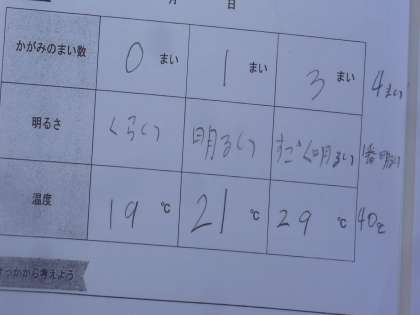 月 日
かがみのまい数 0 まい 1 まい 3 まい 4まい
明るさ くらい 明るい すごく明るい 1番明るい
温度 19 ℃ 21 ℃ 29 ℃ 40℃
から考えよう